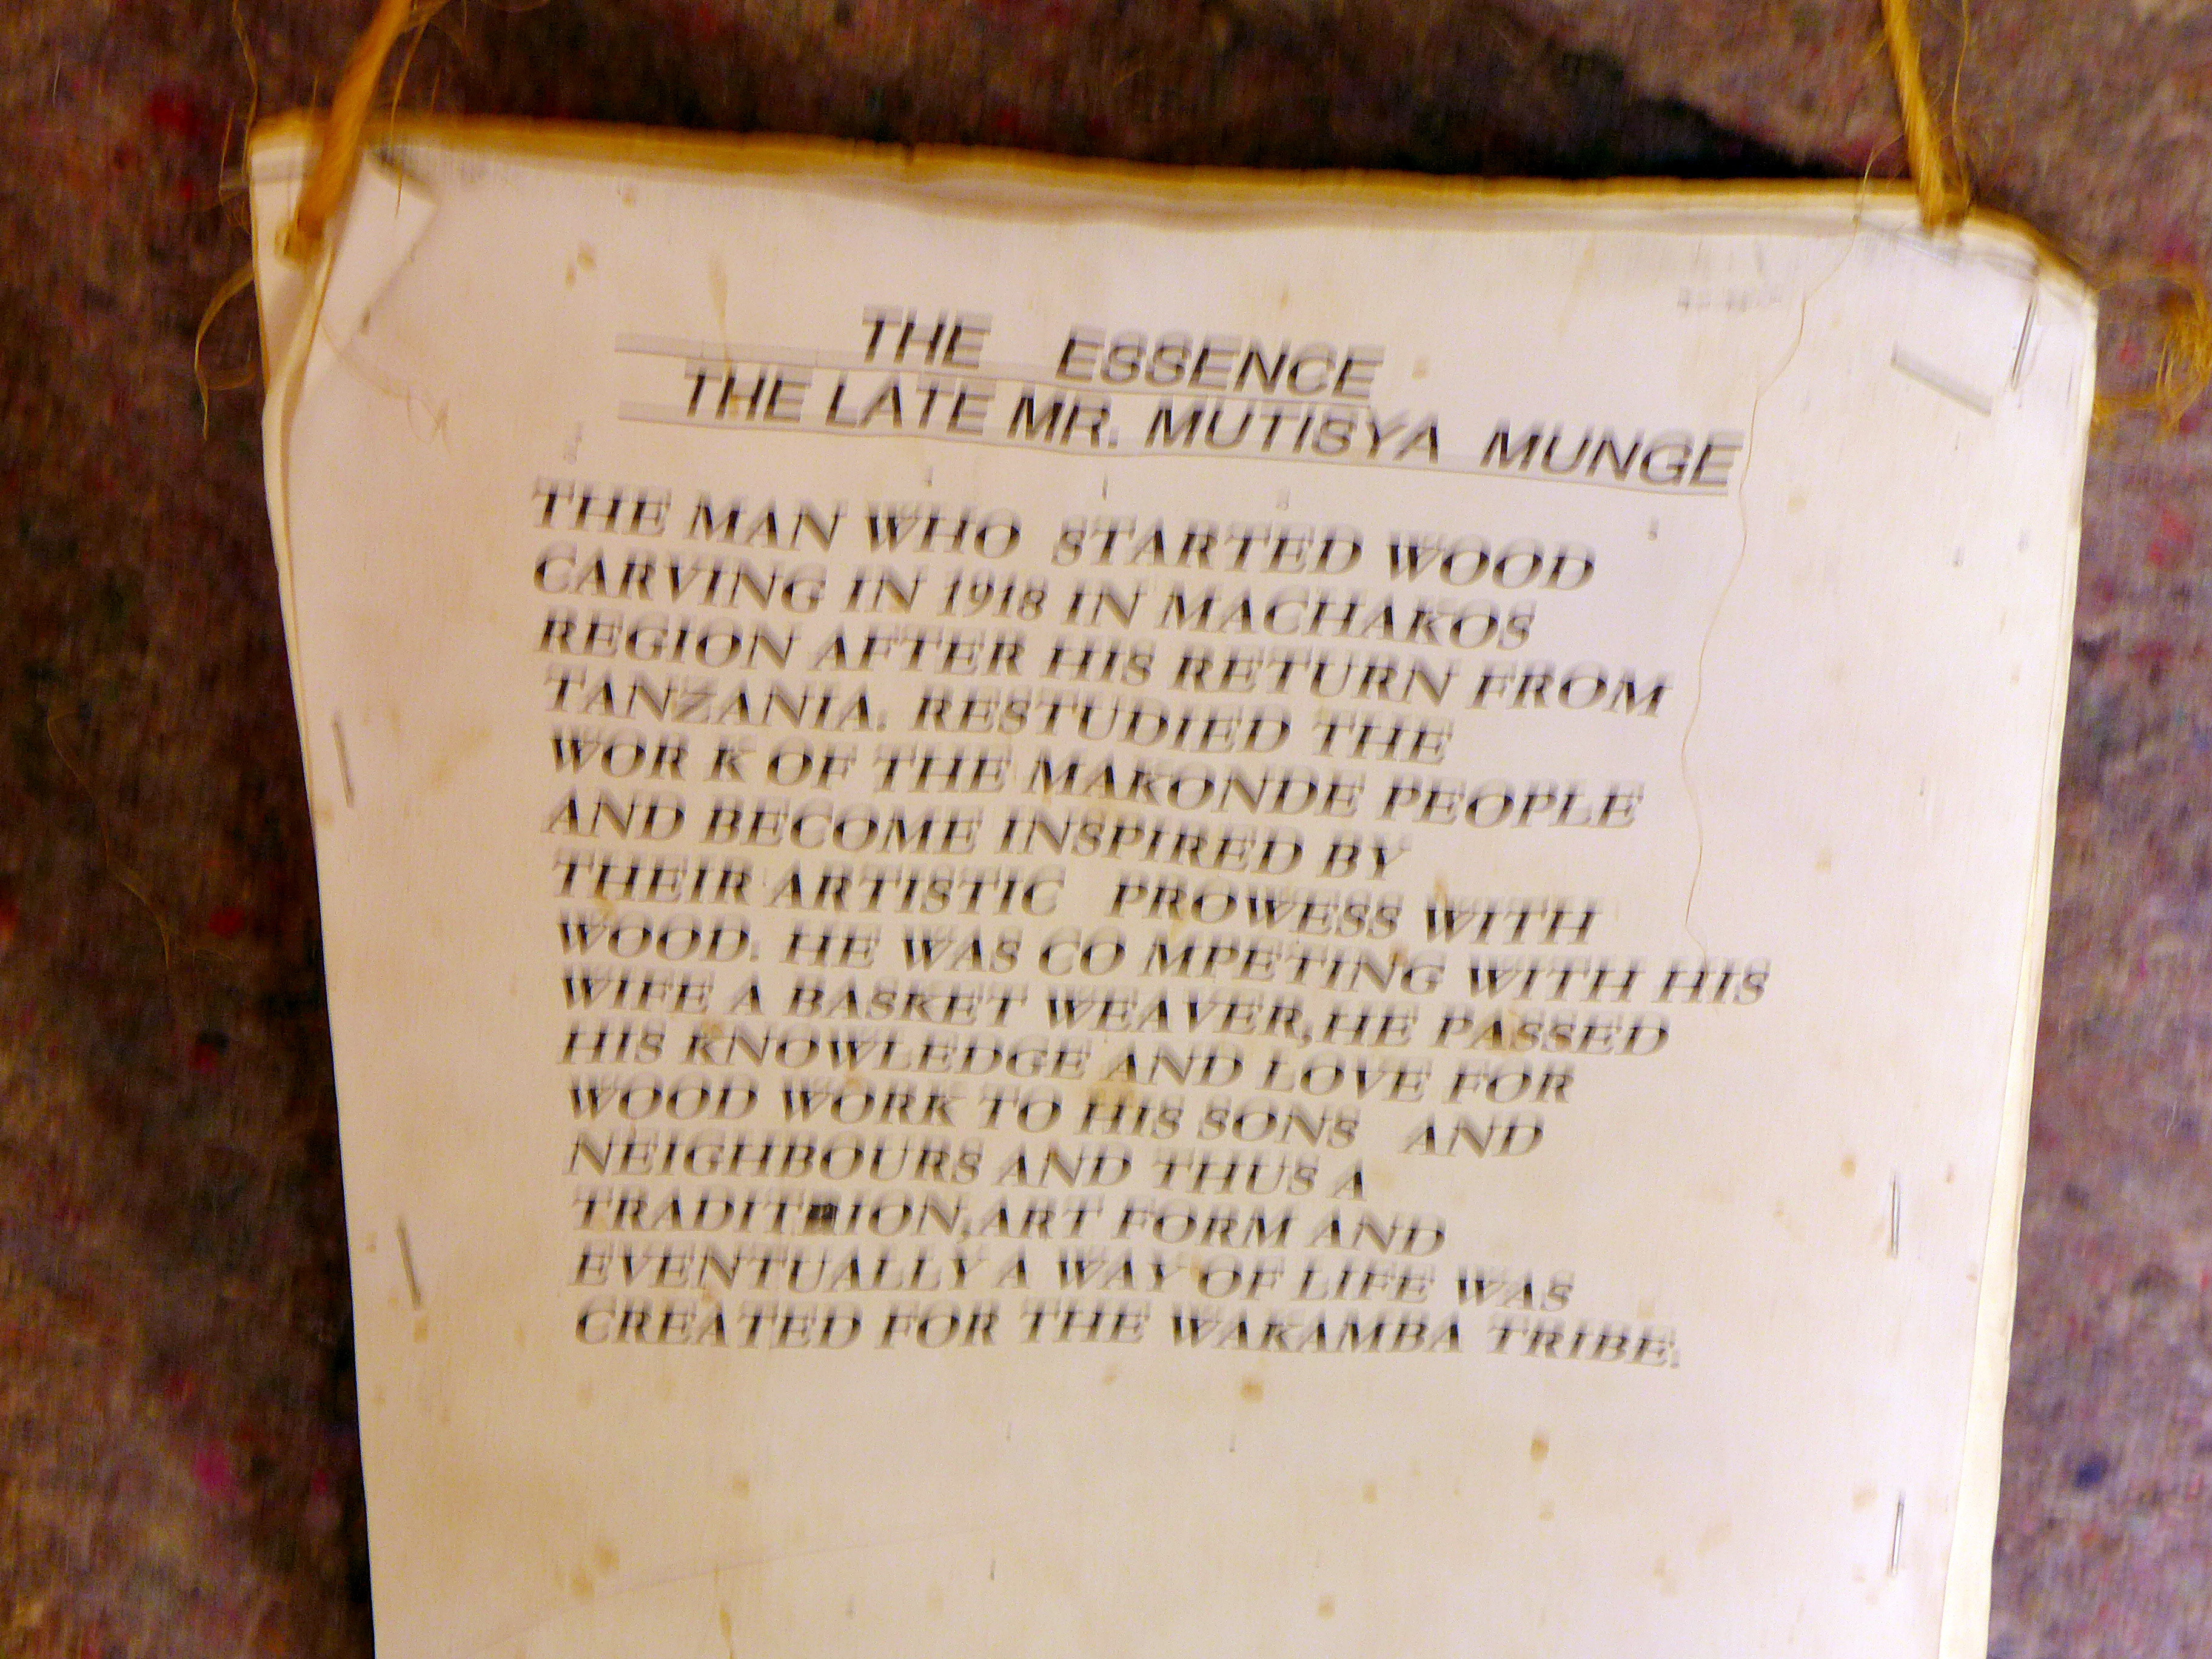 THE ESSENCE
THE LATE MR. MUTISYA MUNGE
THE MAN WHO STARTED WOOD
CARVING IN 1918 IN MACHAKOS
REGION AFTER HIS RETURN FROM
TANZANIA. RESTUDIED THE
WOR K OF THE MAKONDE PEOPLE
AND BECOME INSPIRED BY
THEIR ARTISTIC PROWESS WITH
WOOD. HE WAS CO MPETING WITH HIS
WIFE A BASKET WEAVER,HE PASSED
HIS KNOWLEDGE AND LOVE FOR
WOOD WORK TO HIS SONS AND
NEIGHBOURS AND THUS A
TRADITRION,ART FORM AND
EVENTUALLY A WAY OF LIFE WAS
CREATED FOR THE WAKAMBA TRIBE.